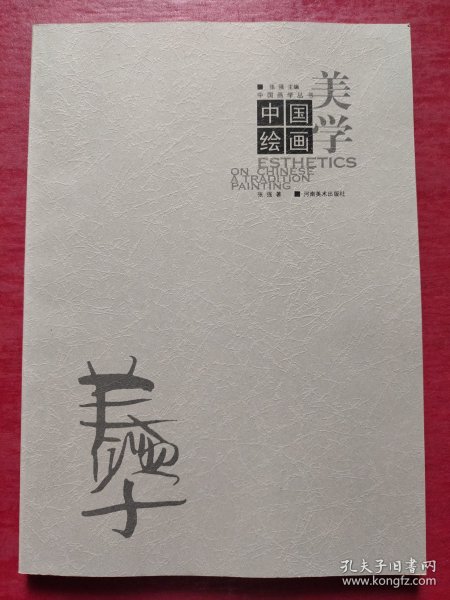 ■ 张强 主编
中国画学丛书
美学
中国
绘画
ESTHETICS
ON CHINESE
A TRADITION
PAINTING
张强 著 ■ 河南美术出版社
美学
孔夫子旧书网
www.kongfz.com